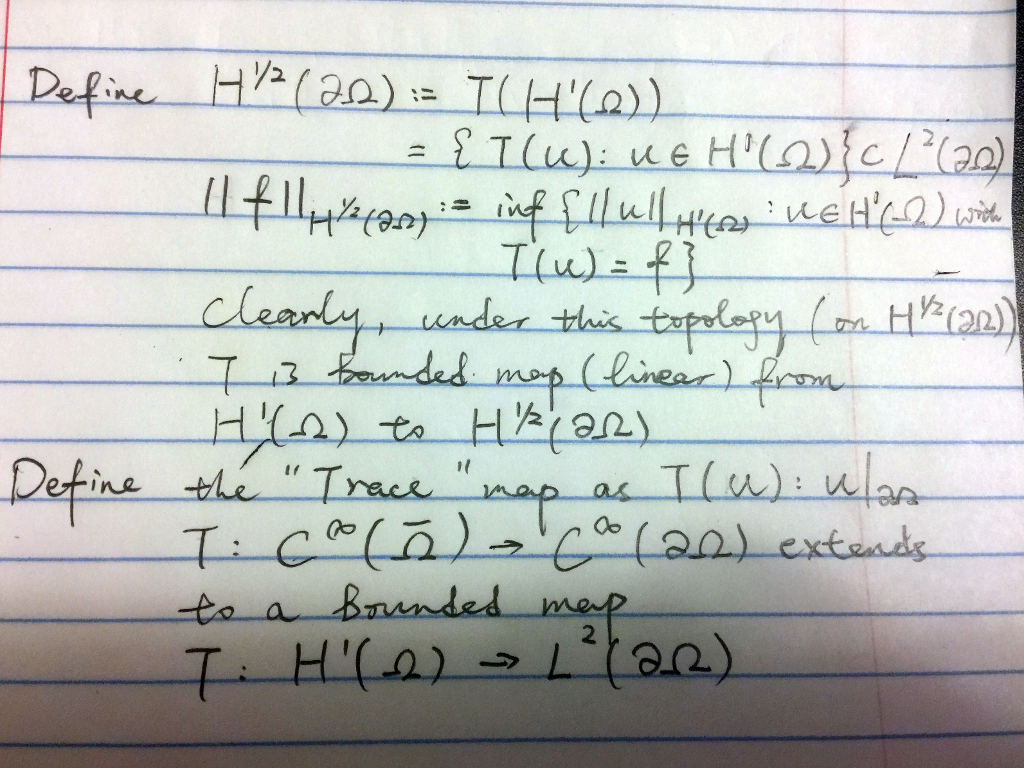 Define H^{1/2}(∂Ω) := T(H^1(Ω))
= {T(u): u ∈ H^1(Ω)} ⊂ L^2(∂Ω)
||f||_{H^{1/2}(∂Ω)} := inf {||u||_{H^1(Ω)} : u ∈ H^1(Ω) with
T(u) = f}
Clearly, under this topology (on H^{1/2}(∂Ω))
T is bounded map (linear) from
H^1(Ω) to H^{1/2}(∂Ω)
Define the "Trace" map as T(u): u|_{∂Ω}
T: C^∞(Ω̄) → C^∞(∂Ω) extends
to a Bounded map
T: H^1(Ω) → L^2(∂Ω)